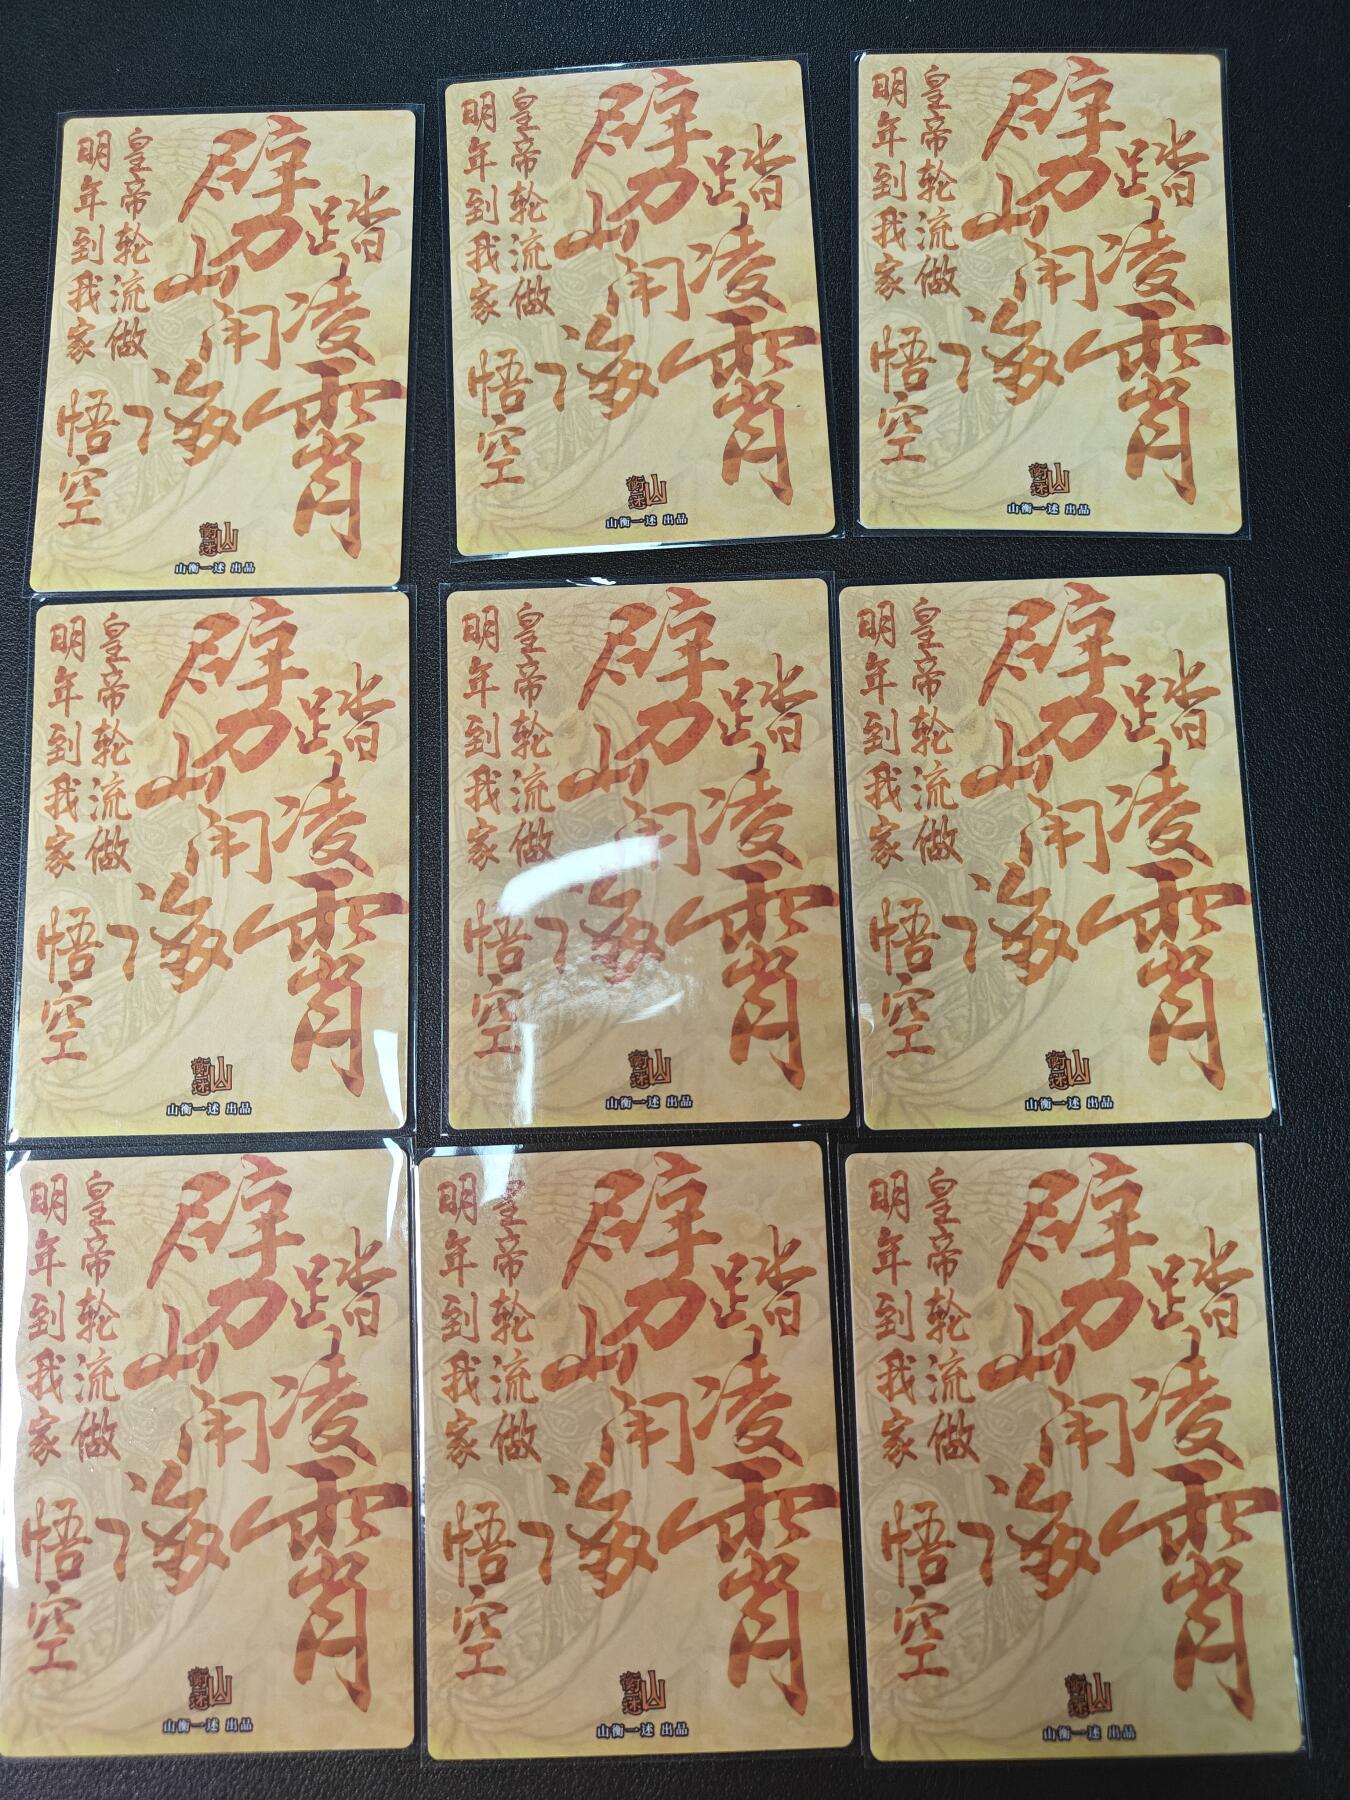 踏凌霄
劈山闹海
皇帝轮流做
明年到我家
悟空
山衡一述
山衡一述 出品
踏凌霄
劈山闹海
皇帝轮流做
明年到我家
悟空
山衡一述
山衡一述 出品
踏凌霄
劈山闹海
皇帝轮流做
明年到我家
悟空
山衡一述
山衡一述 出品
踏凌霄
劈山闹海
皇帝轮流做
明年到我家
悟空
山衡一述
山衡一述 出品
踏凌霄
劈山闹海
皇帝轮流做
明年到我家
悟空
山衡一述
山衡一述 出品
踏凌霄
劈山闹海
皇帝轮流做
明年到我家
悟空
山衡一述
山衡一述 出品
踏凌霄
劈山闹海
皇帝轮流做
明年到我家
悟空
山衡一述
山衡一述 出品
踏凌霄
劈山闹海
皇帝轮流做
明年到我家
悟空
山衡一述
山衡一述 出品
踏凌霄
劈山闹海
皇帝轮流做
明年到我家
悟空
山衡一述
山衡一述 出品